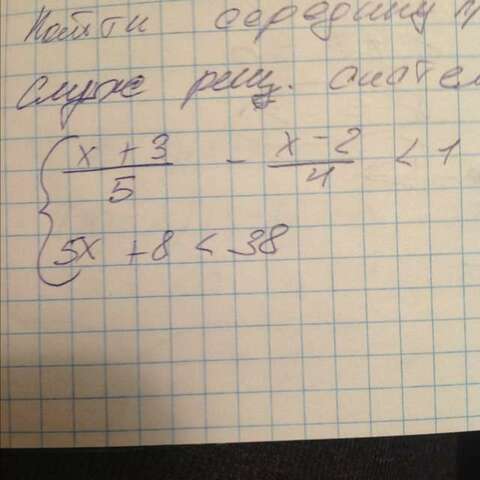 Найти середину
служ реш. систем
{ x + 3 / 5 - x - 2 / 4 < 1
5x + 8 < 38